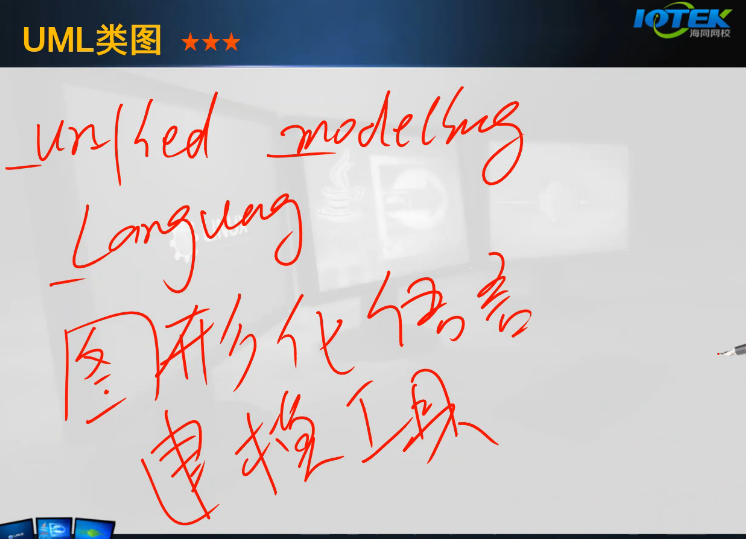 UML类图 ★★★
IOTEK
海同网校
unified modelling
Languag
图形化语言
建模工具